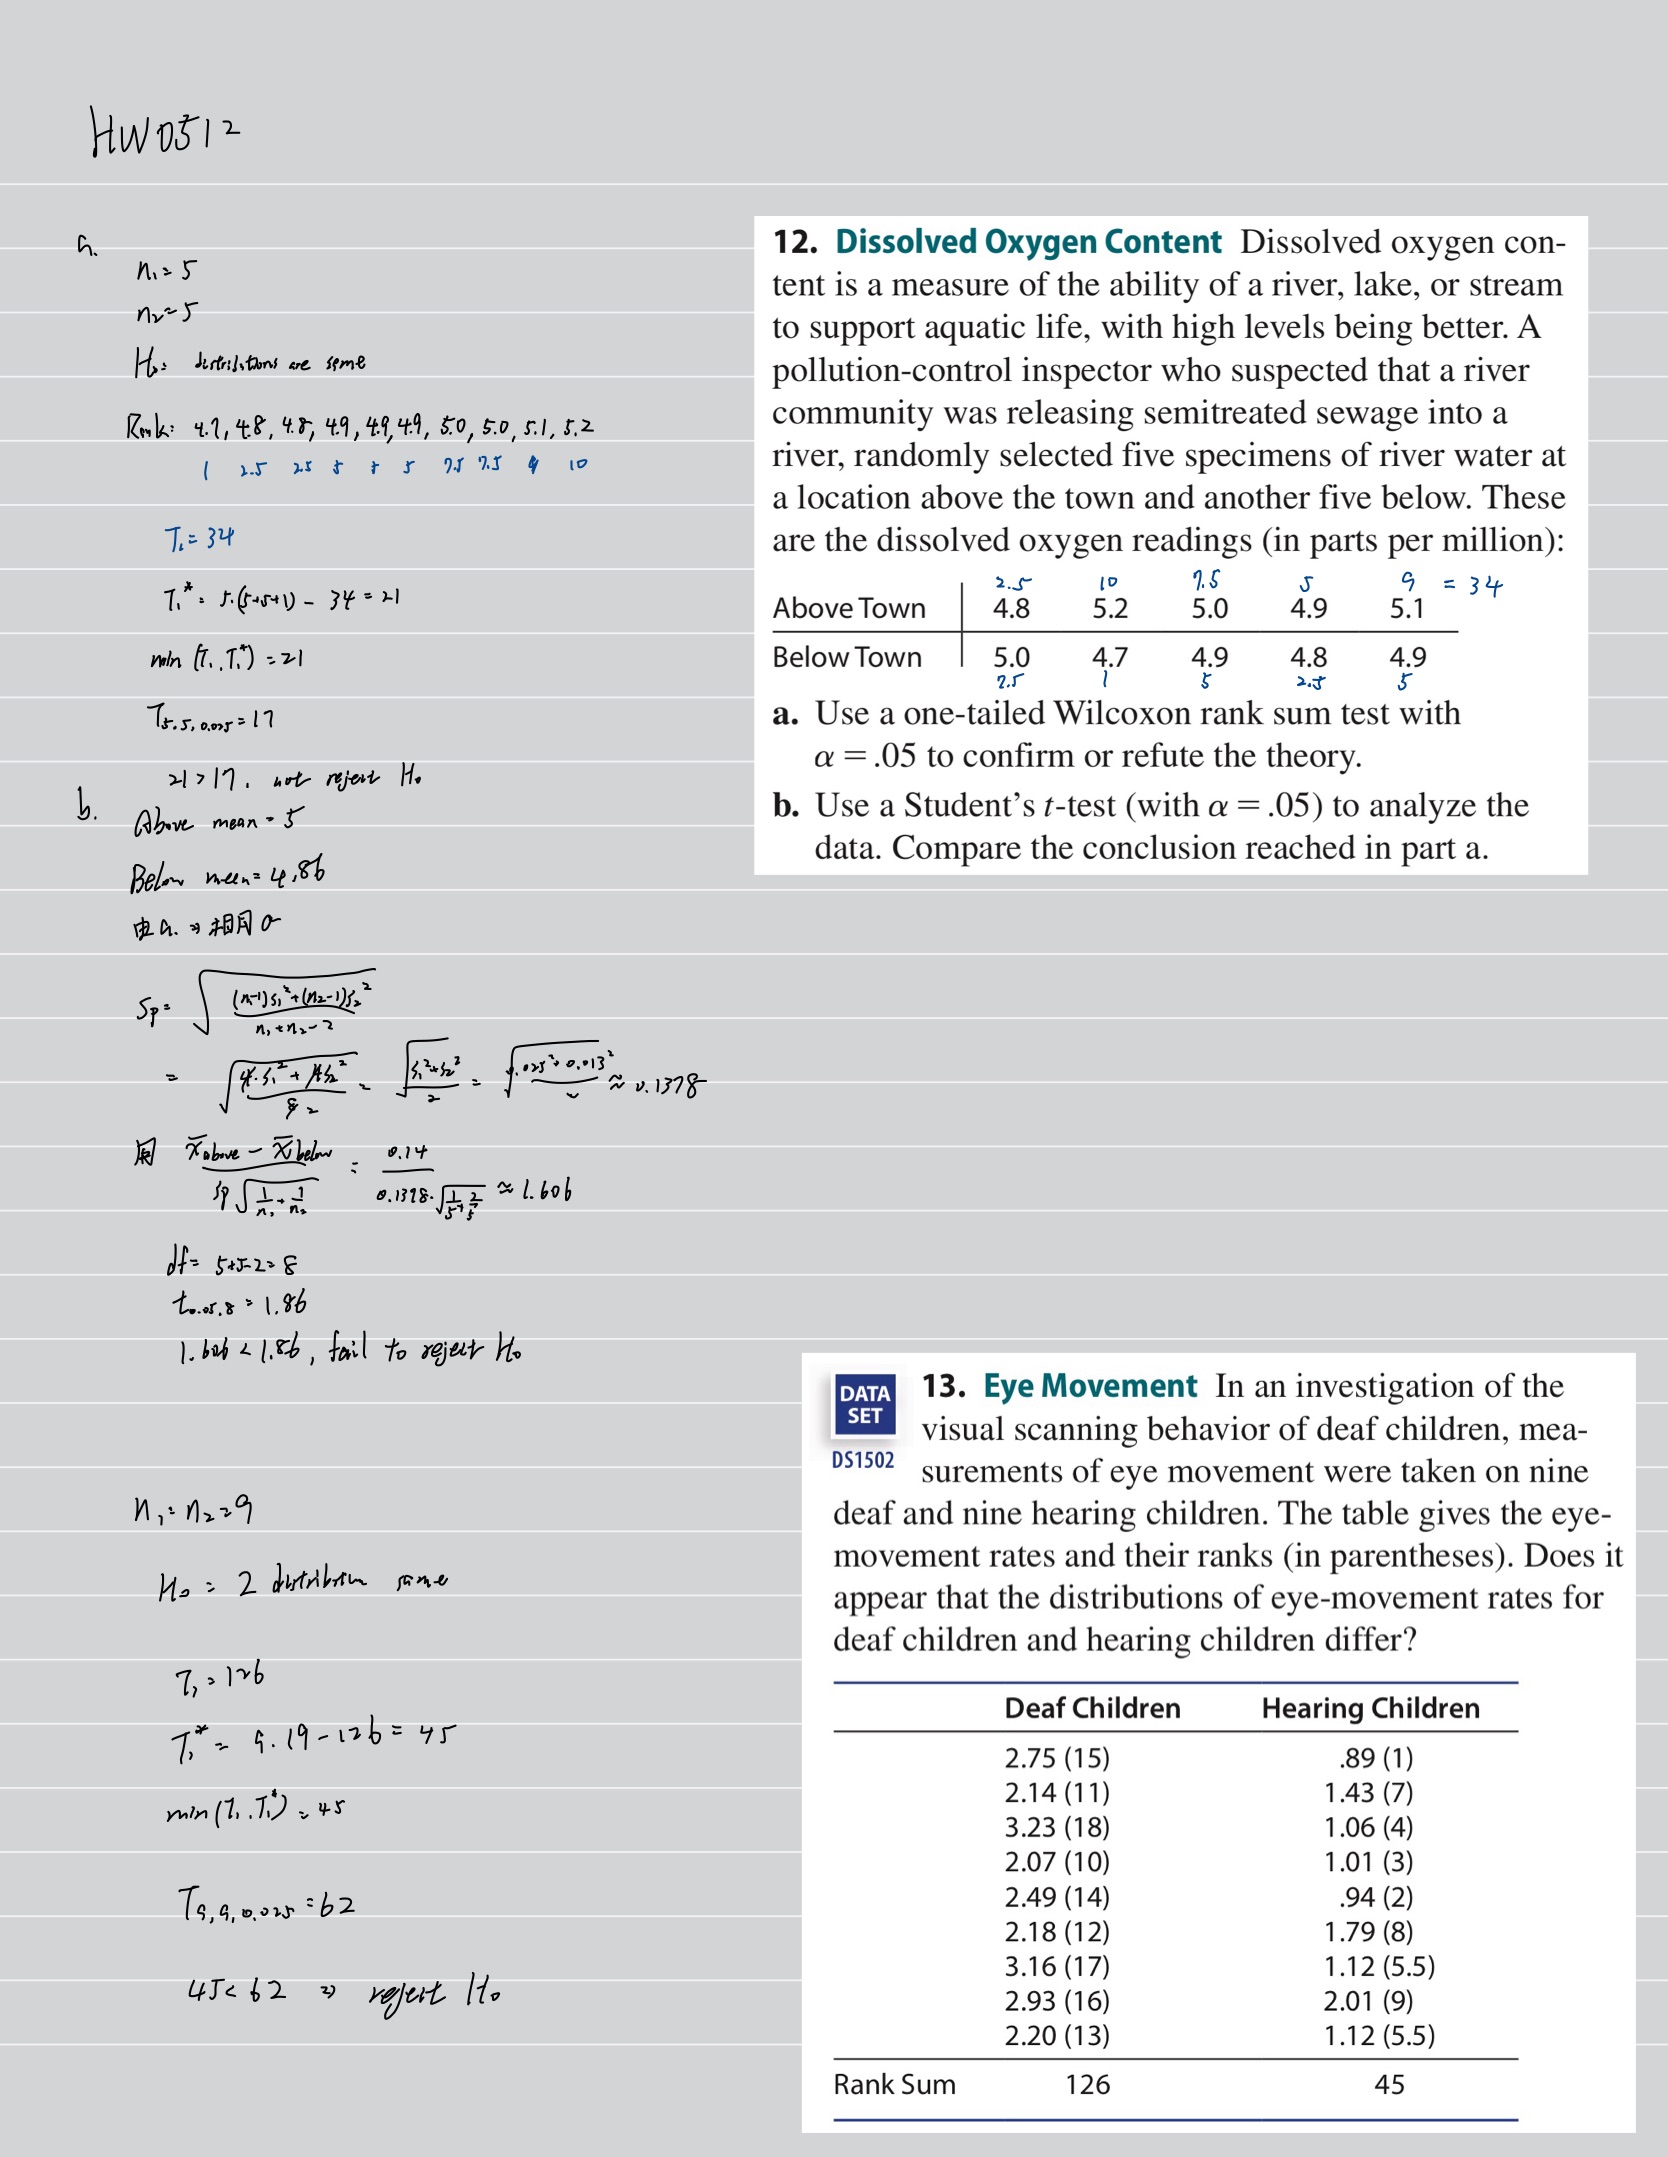 HW0512
a.
n₁ = 5
n₂ = 5
H₀: distributions are same
Rank: 4.7, 4.8, 4.8, 4.9, 4.9, 4.9, 5.0, 5.0, 5.1, 5.2
1 2.5 2.5 5 5 5 7.5 7.5 9 10
T₁ = 34
T₁* = 5·(5+5+1) - 34 = 21
min (T₁, T₁*) = 21
T₅.₅, ₀.₀₂₅ = 17
21 > 17, not reject H₀
b.
Above mean = 5
Below mean = 4.86
由 a. ⇒ 相同 σ
Sp = √((n₁-1)s₁² + (n₂-1)s₂² / n₁+n₂-2)
= √(4·s₁² + 4s₂² / 8 2) = √(s₁²+s₂² / 2) = √(0.025²+0.013² / 2) ≈ 0.1378
用 x̄above - x̄below / sp√(1/n₁ + 1/n₂) = 0.14 / 0.1378·√(1/5 + 2/5) ≈ 1.606
df = 5+5-2 = 8
t₀.₀₅,₈ = 1.86
1.606 < 1.86, fail to reject H₀
12. Dissolved Oxygen Content Dissolved oxygen con-
tent is a measure of the ability of a river, lake, or stream
to support aquatic life, with high levels being better. A
pollution-control inspector who suspected that a river
community was releasing semitreated sewage into a
river, randomly selected five specimens of river water at
a location above the town and another five below. These
are the dissolved oxygen readings (in parts per million):
2.5 10 7.5 5 9 = 34
Above Town 4.8 5.2 5.0 4.9 5.1
Below Town 5.0 4.7 4.9 4.8 4.9
7.5 1 5 2.5 5
a. Use a one-tailed Wilcoxon rank sum test with
α = .05 to confirm or refute the theory.
b. Use a Student's t-test (with α = .05) to analyze the
data. Compare the conclusion reached in part a.
n₁ = n₂ = 9
H₀ = 2 distribution same
T₁ = 126
T₁* = 9·19 - 126 = 45
min (T₁, T₁*) = 45
T₉,₉,₀.₀₂₅ = 62
45 < 62 ⇒ reject H₀
DATA
SET
DS1502
13. Eye Movement In an investigation of the
visual scanning behavior of deaf children, mea-
surements of eye movement were taken on nine
deaf and nine hearing children. The table gives the eye-
movement rates and their ranks (in parentheses). Does it
appear that the distributions of eye-movement rates for
deaf children and hearing children differ?
Deaf Children Hearing Children
2.75 (15) .89 (1)
2.14 (11) 1.43 (7)
3.23 (18) 1.06 (4)
2.07 (10) 1.01 (3)
2.49 (14) .94 (2)
2.18 (12) 1.79 (8)
3.16 (17) 1.12 (5.5)
2.93 (16) 2.01 (9)
2.20 (13) 1.12 (5.5)
Rank Sum 126 45